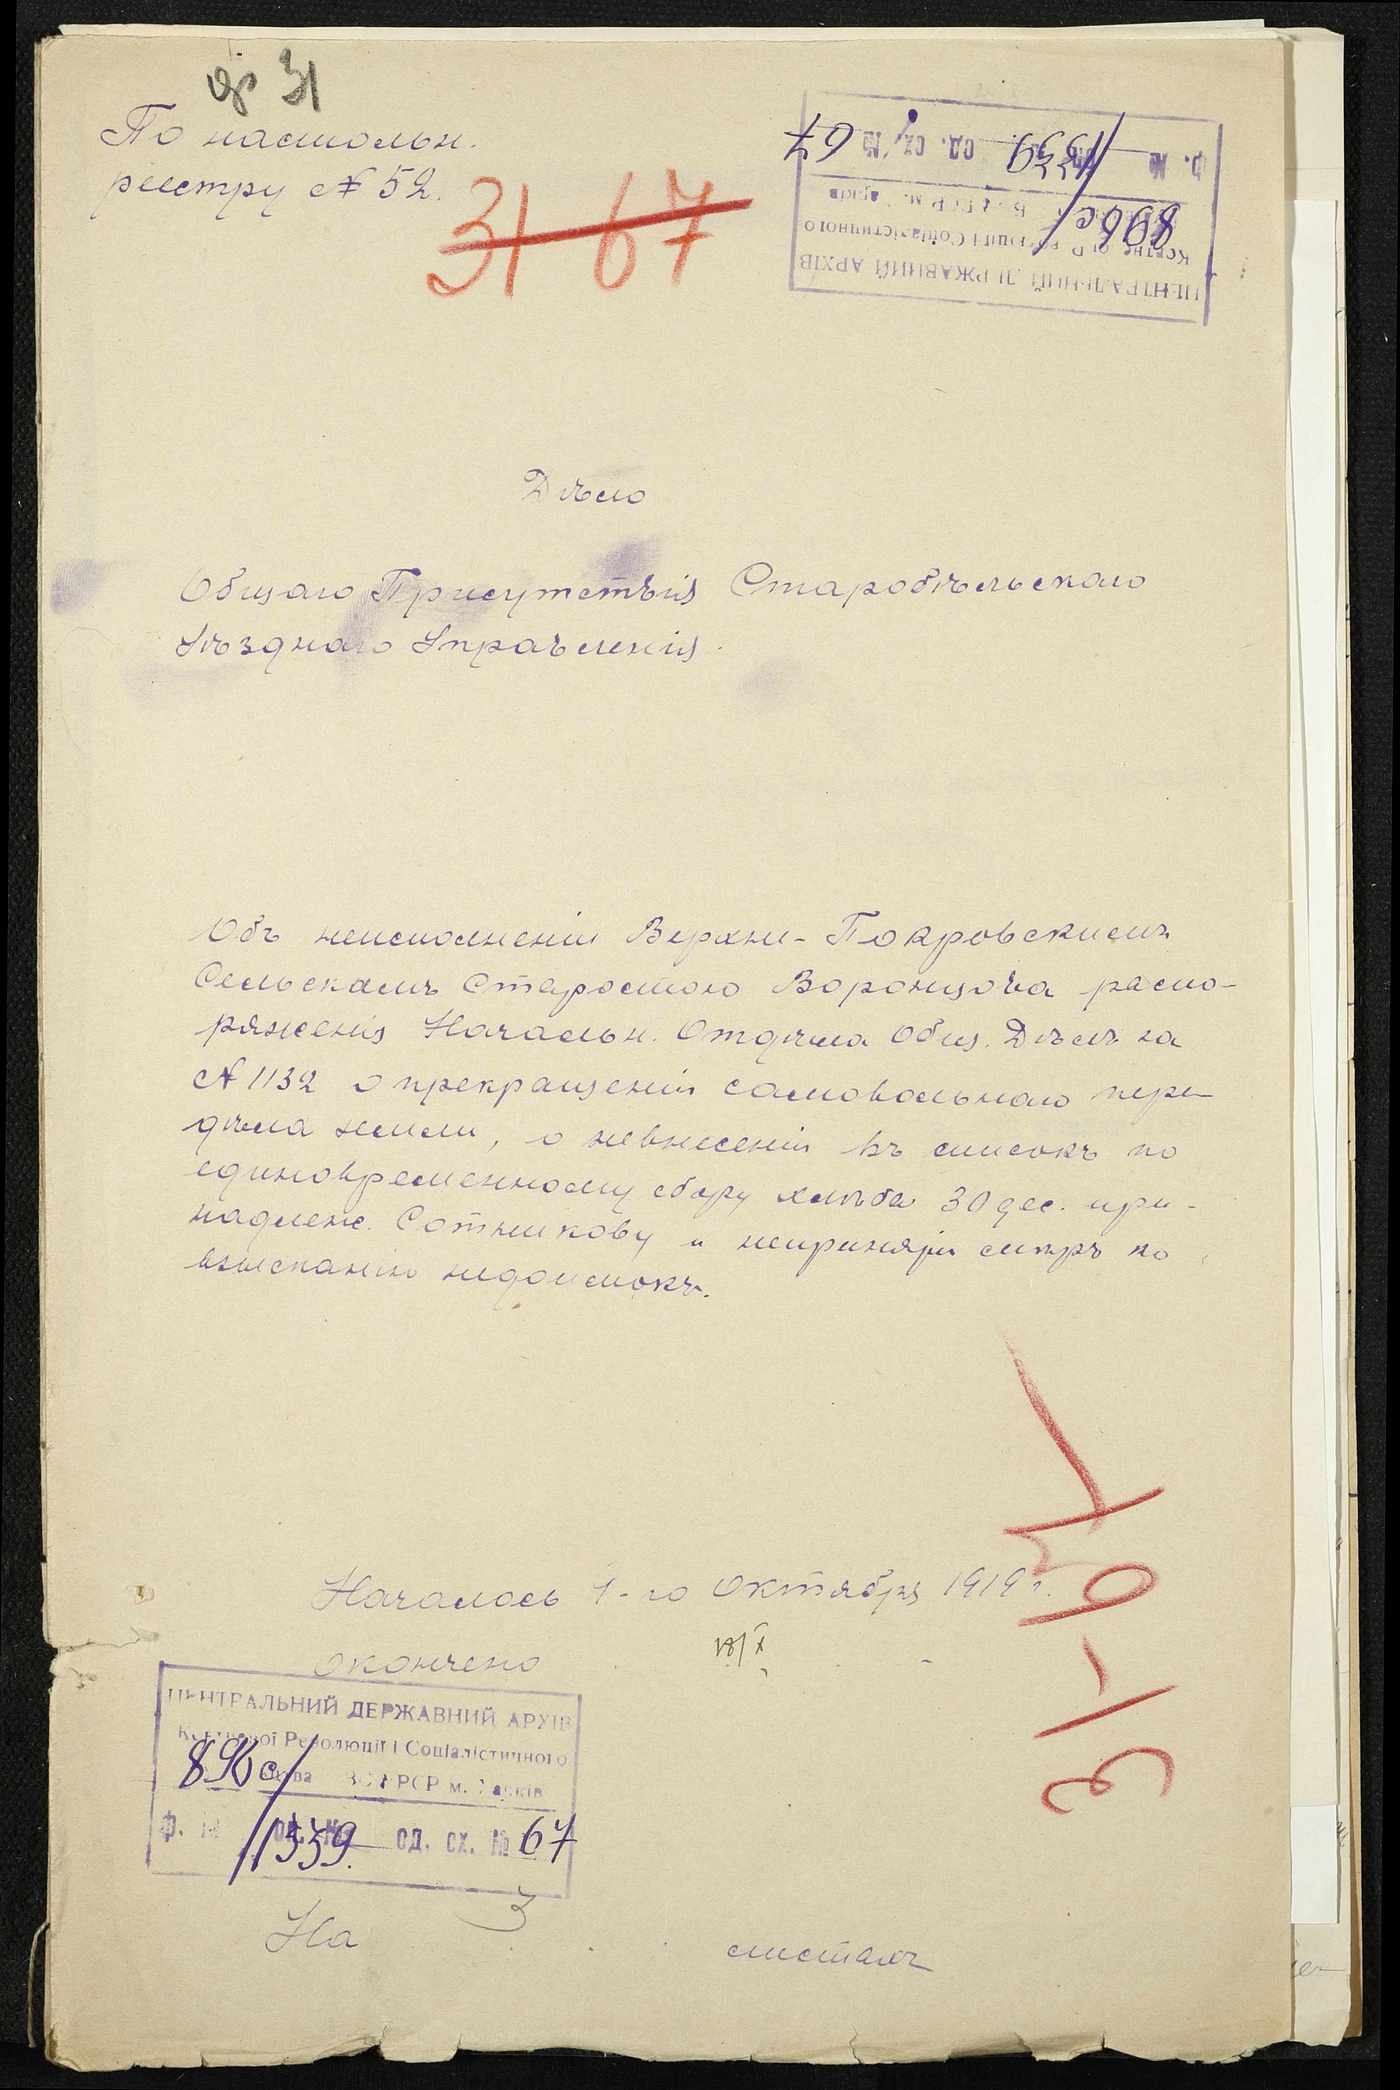 31
По настольн.
реестру № 52.
31 67
ЦЕНТРАЛЬНИЙ ДЕРЖАВНИЙ АРХІВ
Соціалістичного
896с/1339 од. сх. № 67
Дѣло
Общаго Присутствія Старобѣльскаго
Уѣзднаго Управленія.
Объ неисполненіи Верхне-Покровскимъ
Сельскимъ Старостою Воронцова распо-
ряженія Начальн. Отдѣла Общ. Дѣлъ за
№ 1132 о прекращеніи самовольнаго пере-
дѣла земли, о невнесеніи въ списокъ по
единовременному сбору хлѣба 30 дес. при-
надлеж. Сотникову и непринятіи мѣръ ко
взысканію недоимокъ.
Началось 1-го Октября 1919 г.
Окончено 18/X
31-67
ЦЕНТРАЛЬНИЙ ДЕРЖАВНИЙ АРХІВ
Жовтневої Революції і Соціалістичного
м. Харків
896с/1339 од. сх. № 67
На 3 листахъ